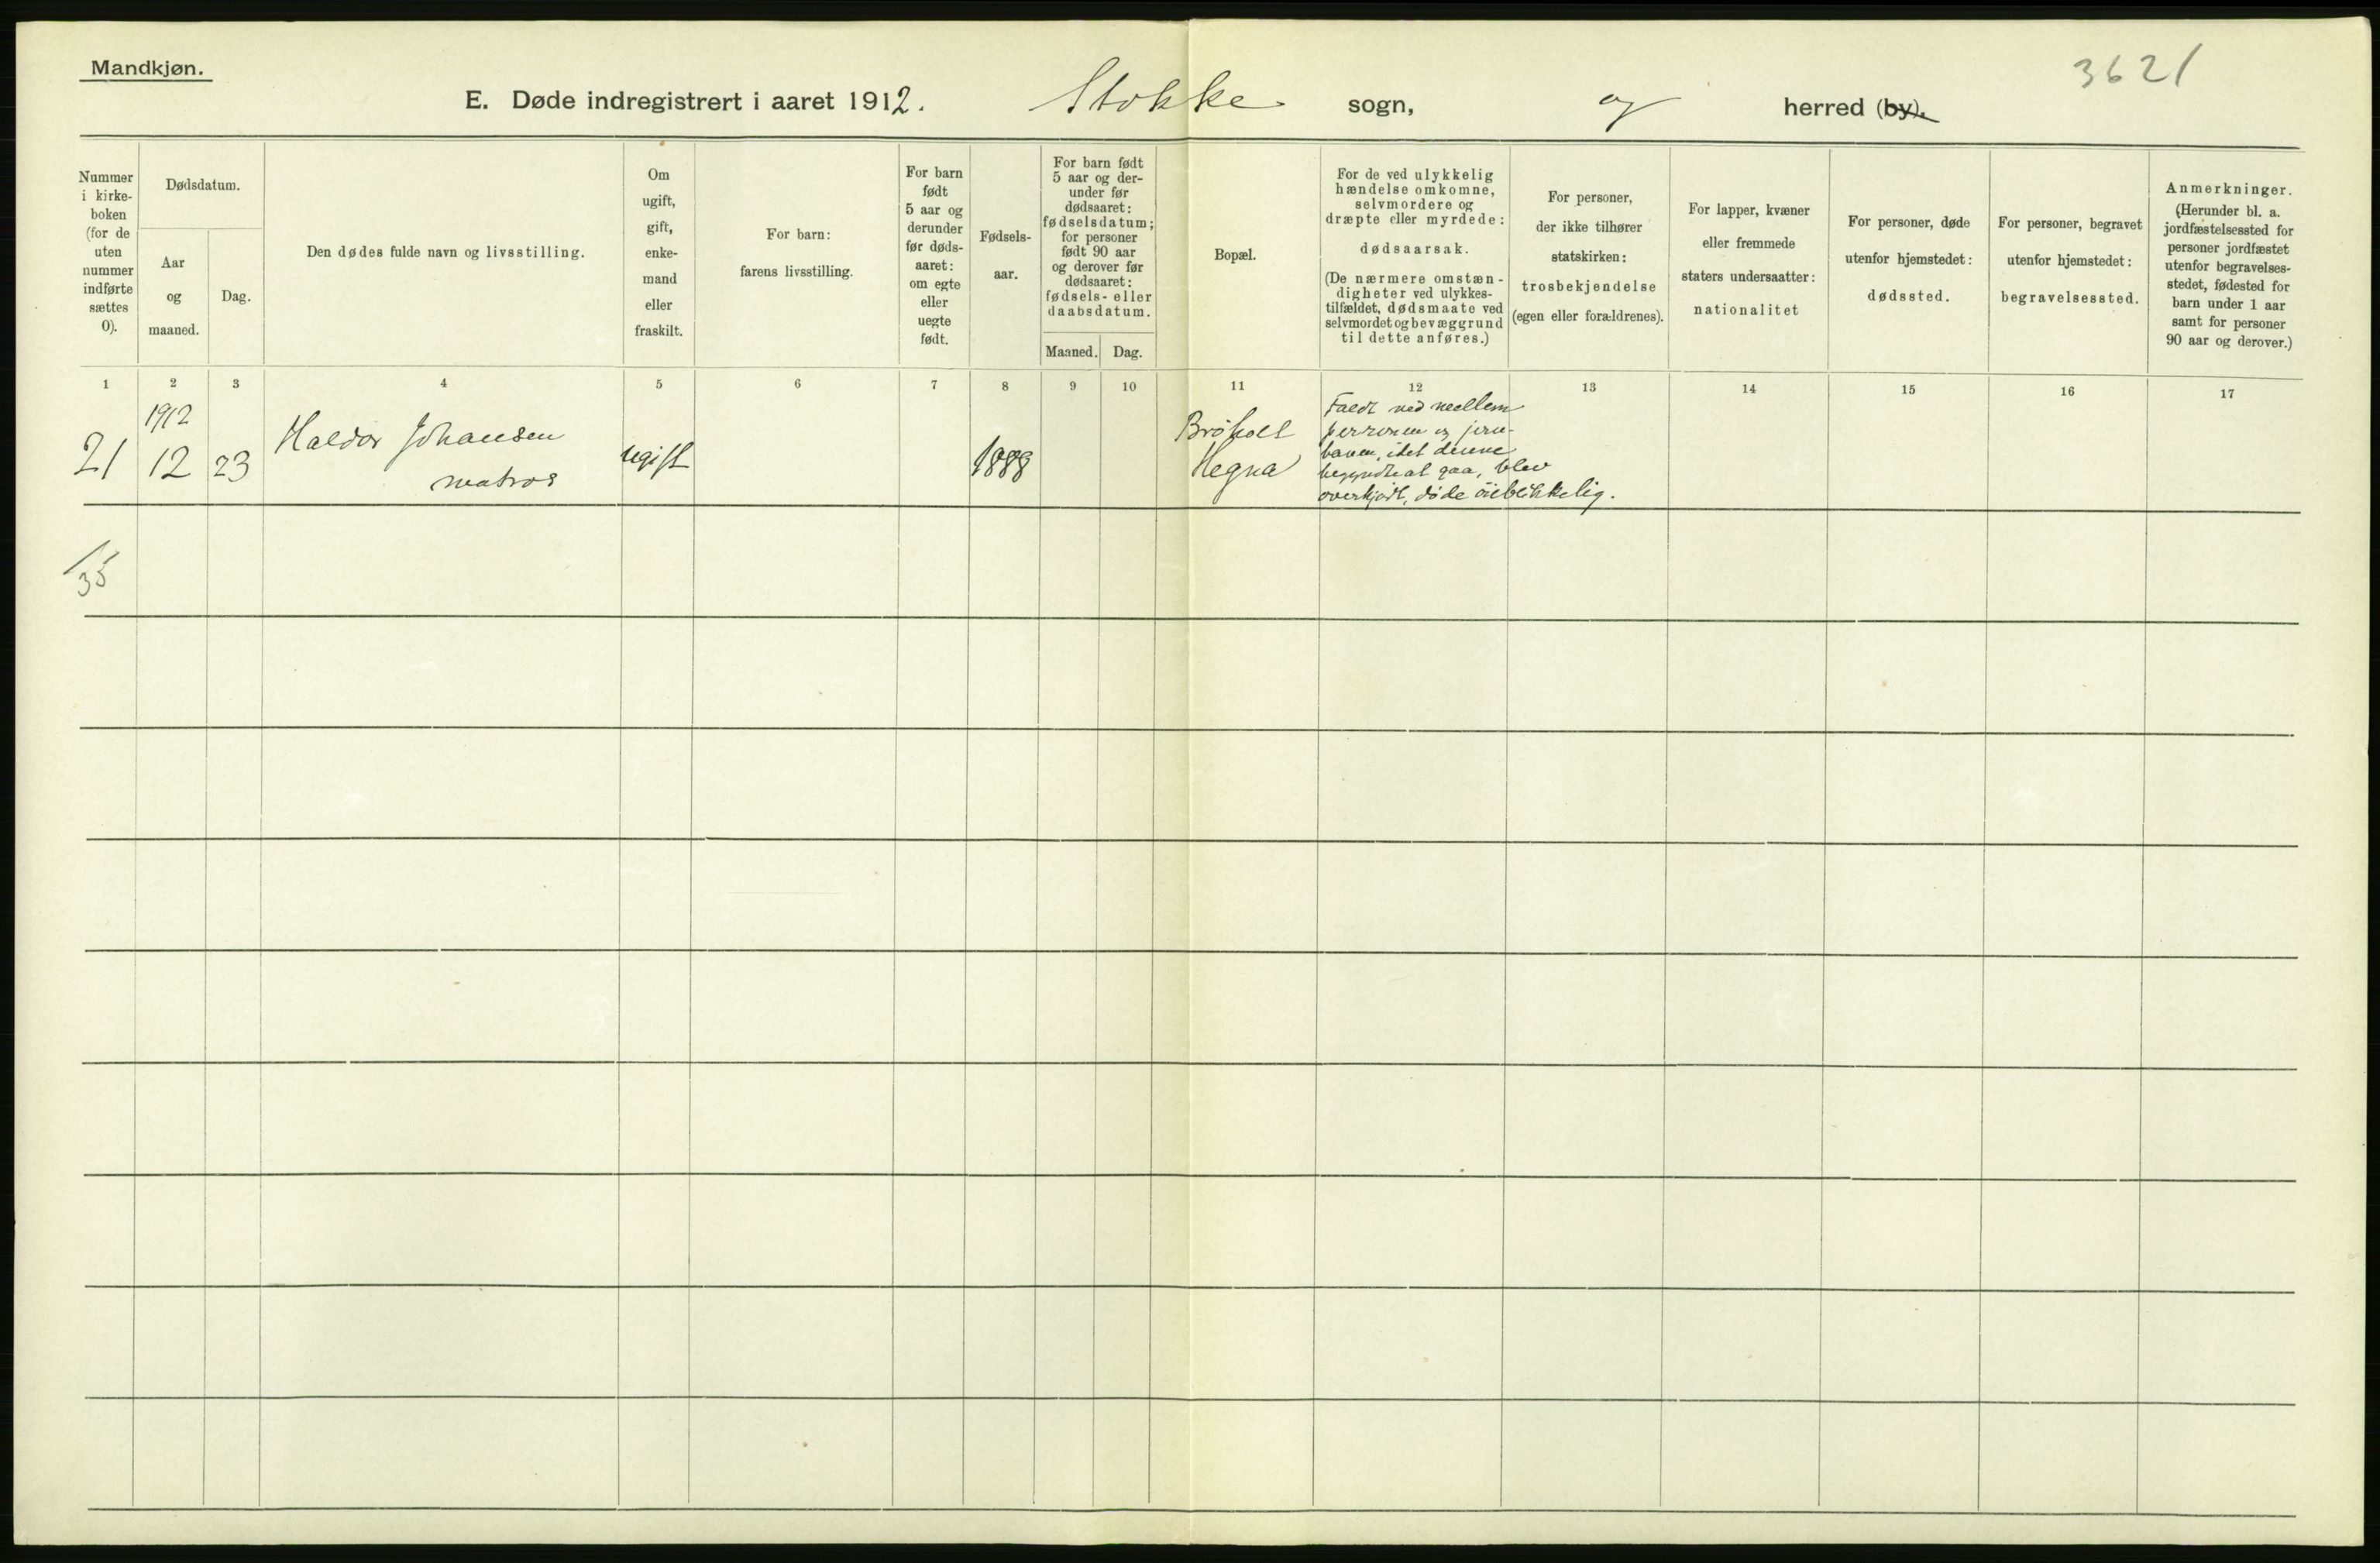 Mandkjøn.
3621
E. Døde indregistrert i aaret 1912. Stokke sogn, og herred (by).
Nummer
i kirke-
boken
(for de
uten
nummer
indførte
sættes
0).
Dødsdatum.
Aar
og
maaned.
Dag.
Den dødes fulde navn og livsstilling.
Om
ugift,
gift,
enke-
mand
eller
fraskilt.
For barn:
farens livsstilling.
For barn
født
5 aar og
derunder
før døds-
aaret:
om egte
eller
uegte
født.
Fødsels-
aar.
For barn født
5 aar og der-
under før
dødsaaret:
fødselsdatum;
for personer
født 90 aar
og derover før
dødsaaret:
fødsels- eller
daabsdatum.
Maaned. Dag.
Bopæl.
For de ved ulykkelig
hændelse omkomne,
selvmordere og
dræpte eller myrdede:
dødsaarsak.
(De nærmere omstæn-
digheter ved ulykkes-
tilfældet, dødsmaate ved
selvmordet og bevæggrund
til dette anføres.)
For personer,
der ikke tilhører
statskirken:
trosbekjendelse
(egen eller forældrenes).
For lapper, kvæner
eller fremmede
staters undersaatter:
nationalitet
For personer, døde
utenfor hjemstedet:
dødssted.
For personer, begravet
utenfor hjemstedet:
begravelsessted.
Anmerkninger.
(Herunder bl. a.
jordfæstelsessted for
personer jordfæstet
utenfor begravelses-
stedet, fødested for
barn under 1 aar
samt for personer
90 aar og derover.)
1 2 3 4 5 6 7 8 9 10 11 12 13 14 15 16 17
21
1912
12
23
Haldor Johansen
matros
ugift
1888
Hegna
Faldt ned mellem
perronen og jern-
banen, idet denne
begyndte at gaa, blev
overkjørt, døde öieblikkelig.
35